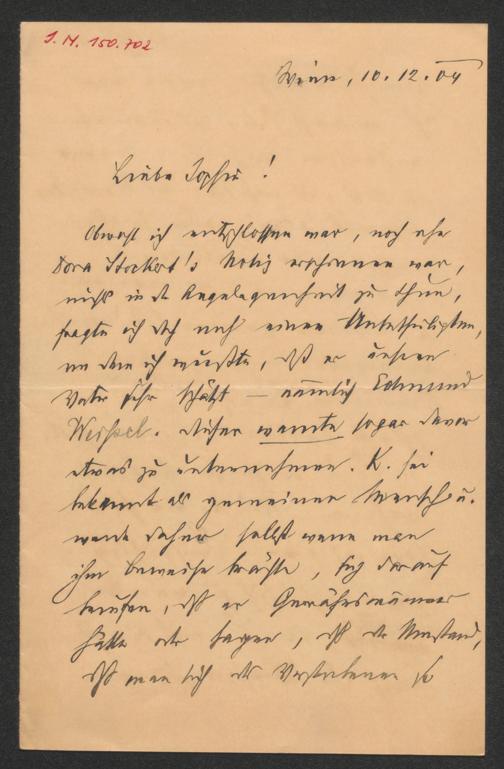 I. N. 150.702
Wien, 10.12.04
Liebe Sophie!
Obwohl ich entschlossen war, noch ehe
Dora Stockert's Notiz erschienen war,
nichts in der Angelegenheit zu thun,
fragte ich doch noch einen Unbetheiligten,
von dem ich wußte, daß er unseren
Vater sehr schätzt – nämlich Edmund
Weissel. Dieser warnte sogar davor
etwas zu unternehmen. K. sei
bekannt als gemeiner Mensch u.
werde daher selbst wenn man
ihm Beweise brächte, sich darauf
berufen, daß er Gewährsmänner
hätte oder sagen, daß der Umstand,
daß man sich des Verstorbenen so